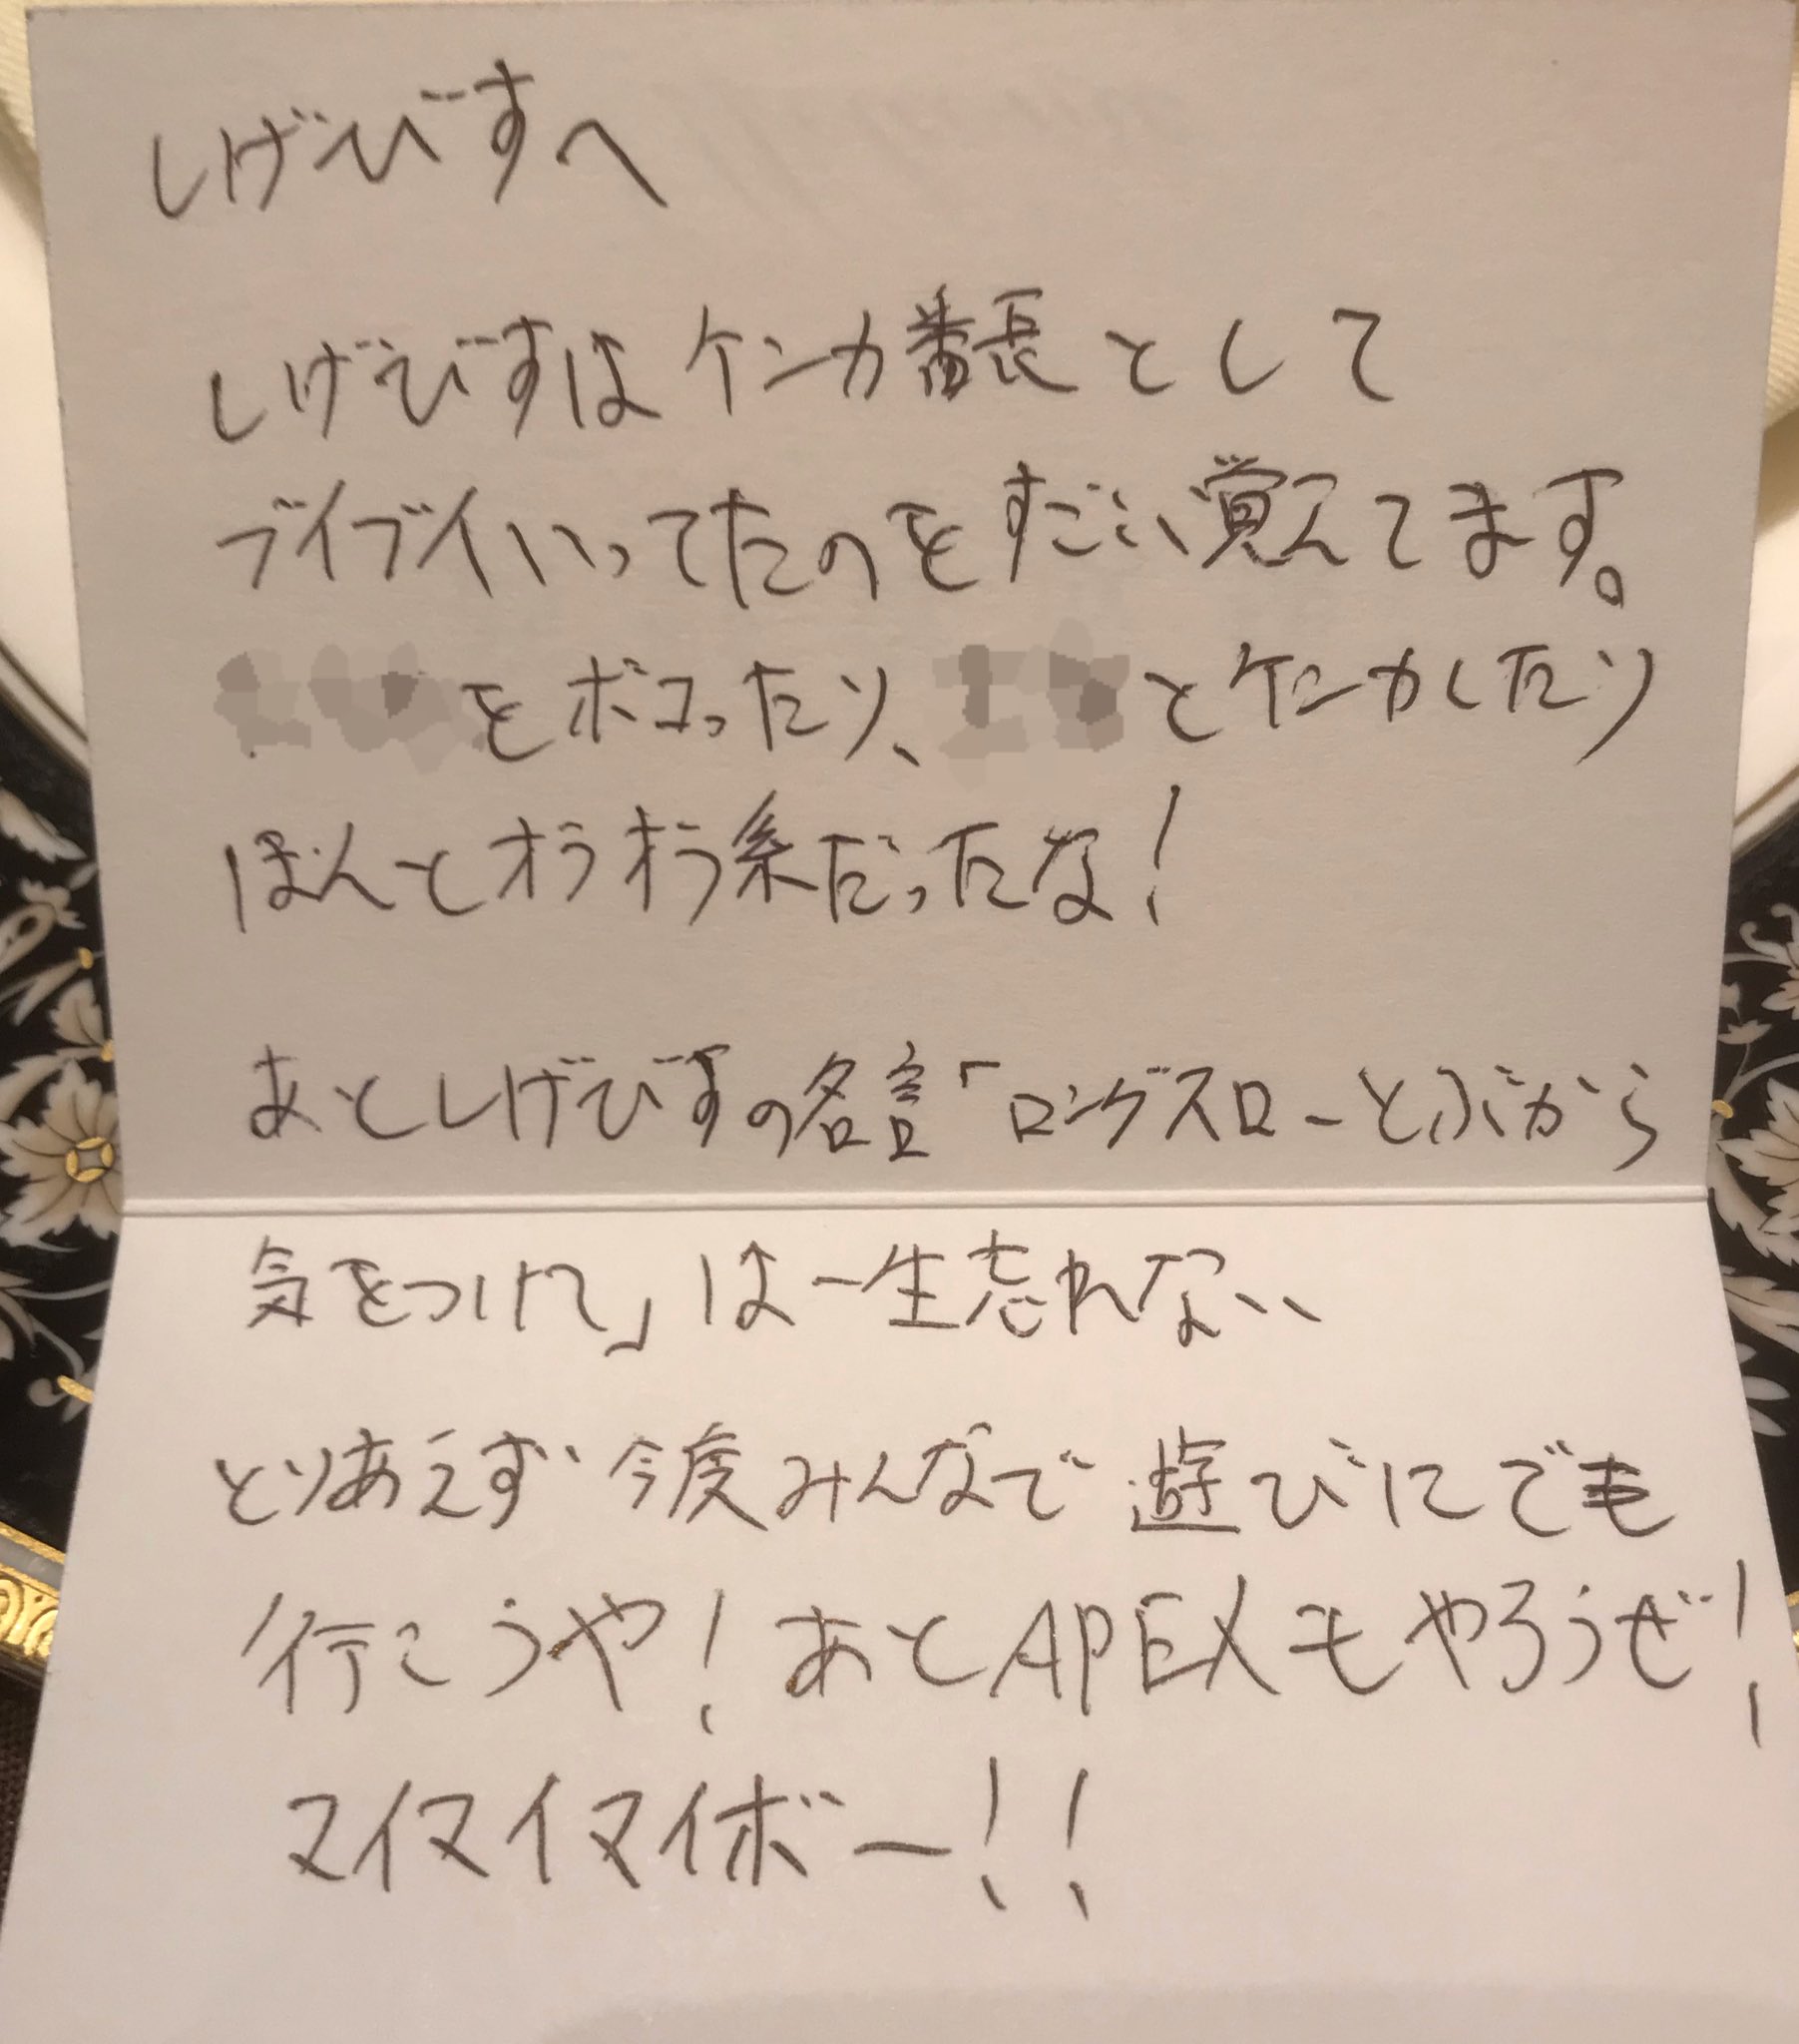 しげびすへ
しげびすはケンカ番長として
ブイブイいってたのをすごい覚えてます。
をボコったり、とケンカしたり
ほんとオラオラ系だったな!
あとしげびすの名言「ロングスローとぶから
気をつけて」は一生忘れない
とりあえず今度みんなで遊びにでも
行こうや!あとAPEXもやろうぜ!
ヌイヌイヌイボー!!